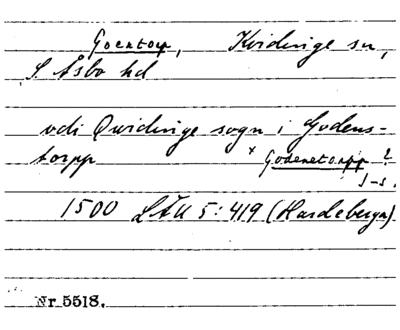 Goentorp, Kvidinge sn,
S Åsbo hd
udi Qvidinge sogn i Godens-
torpp × Godenetorpp?
J-s.
1500 LÄU 5:419 (Hardeberga)
Nr 5518.